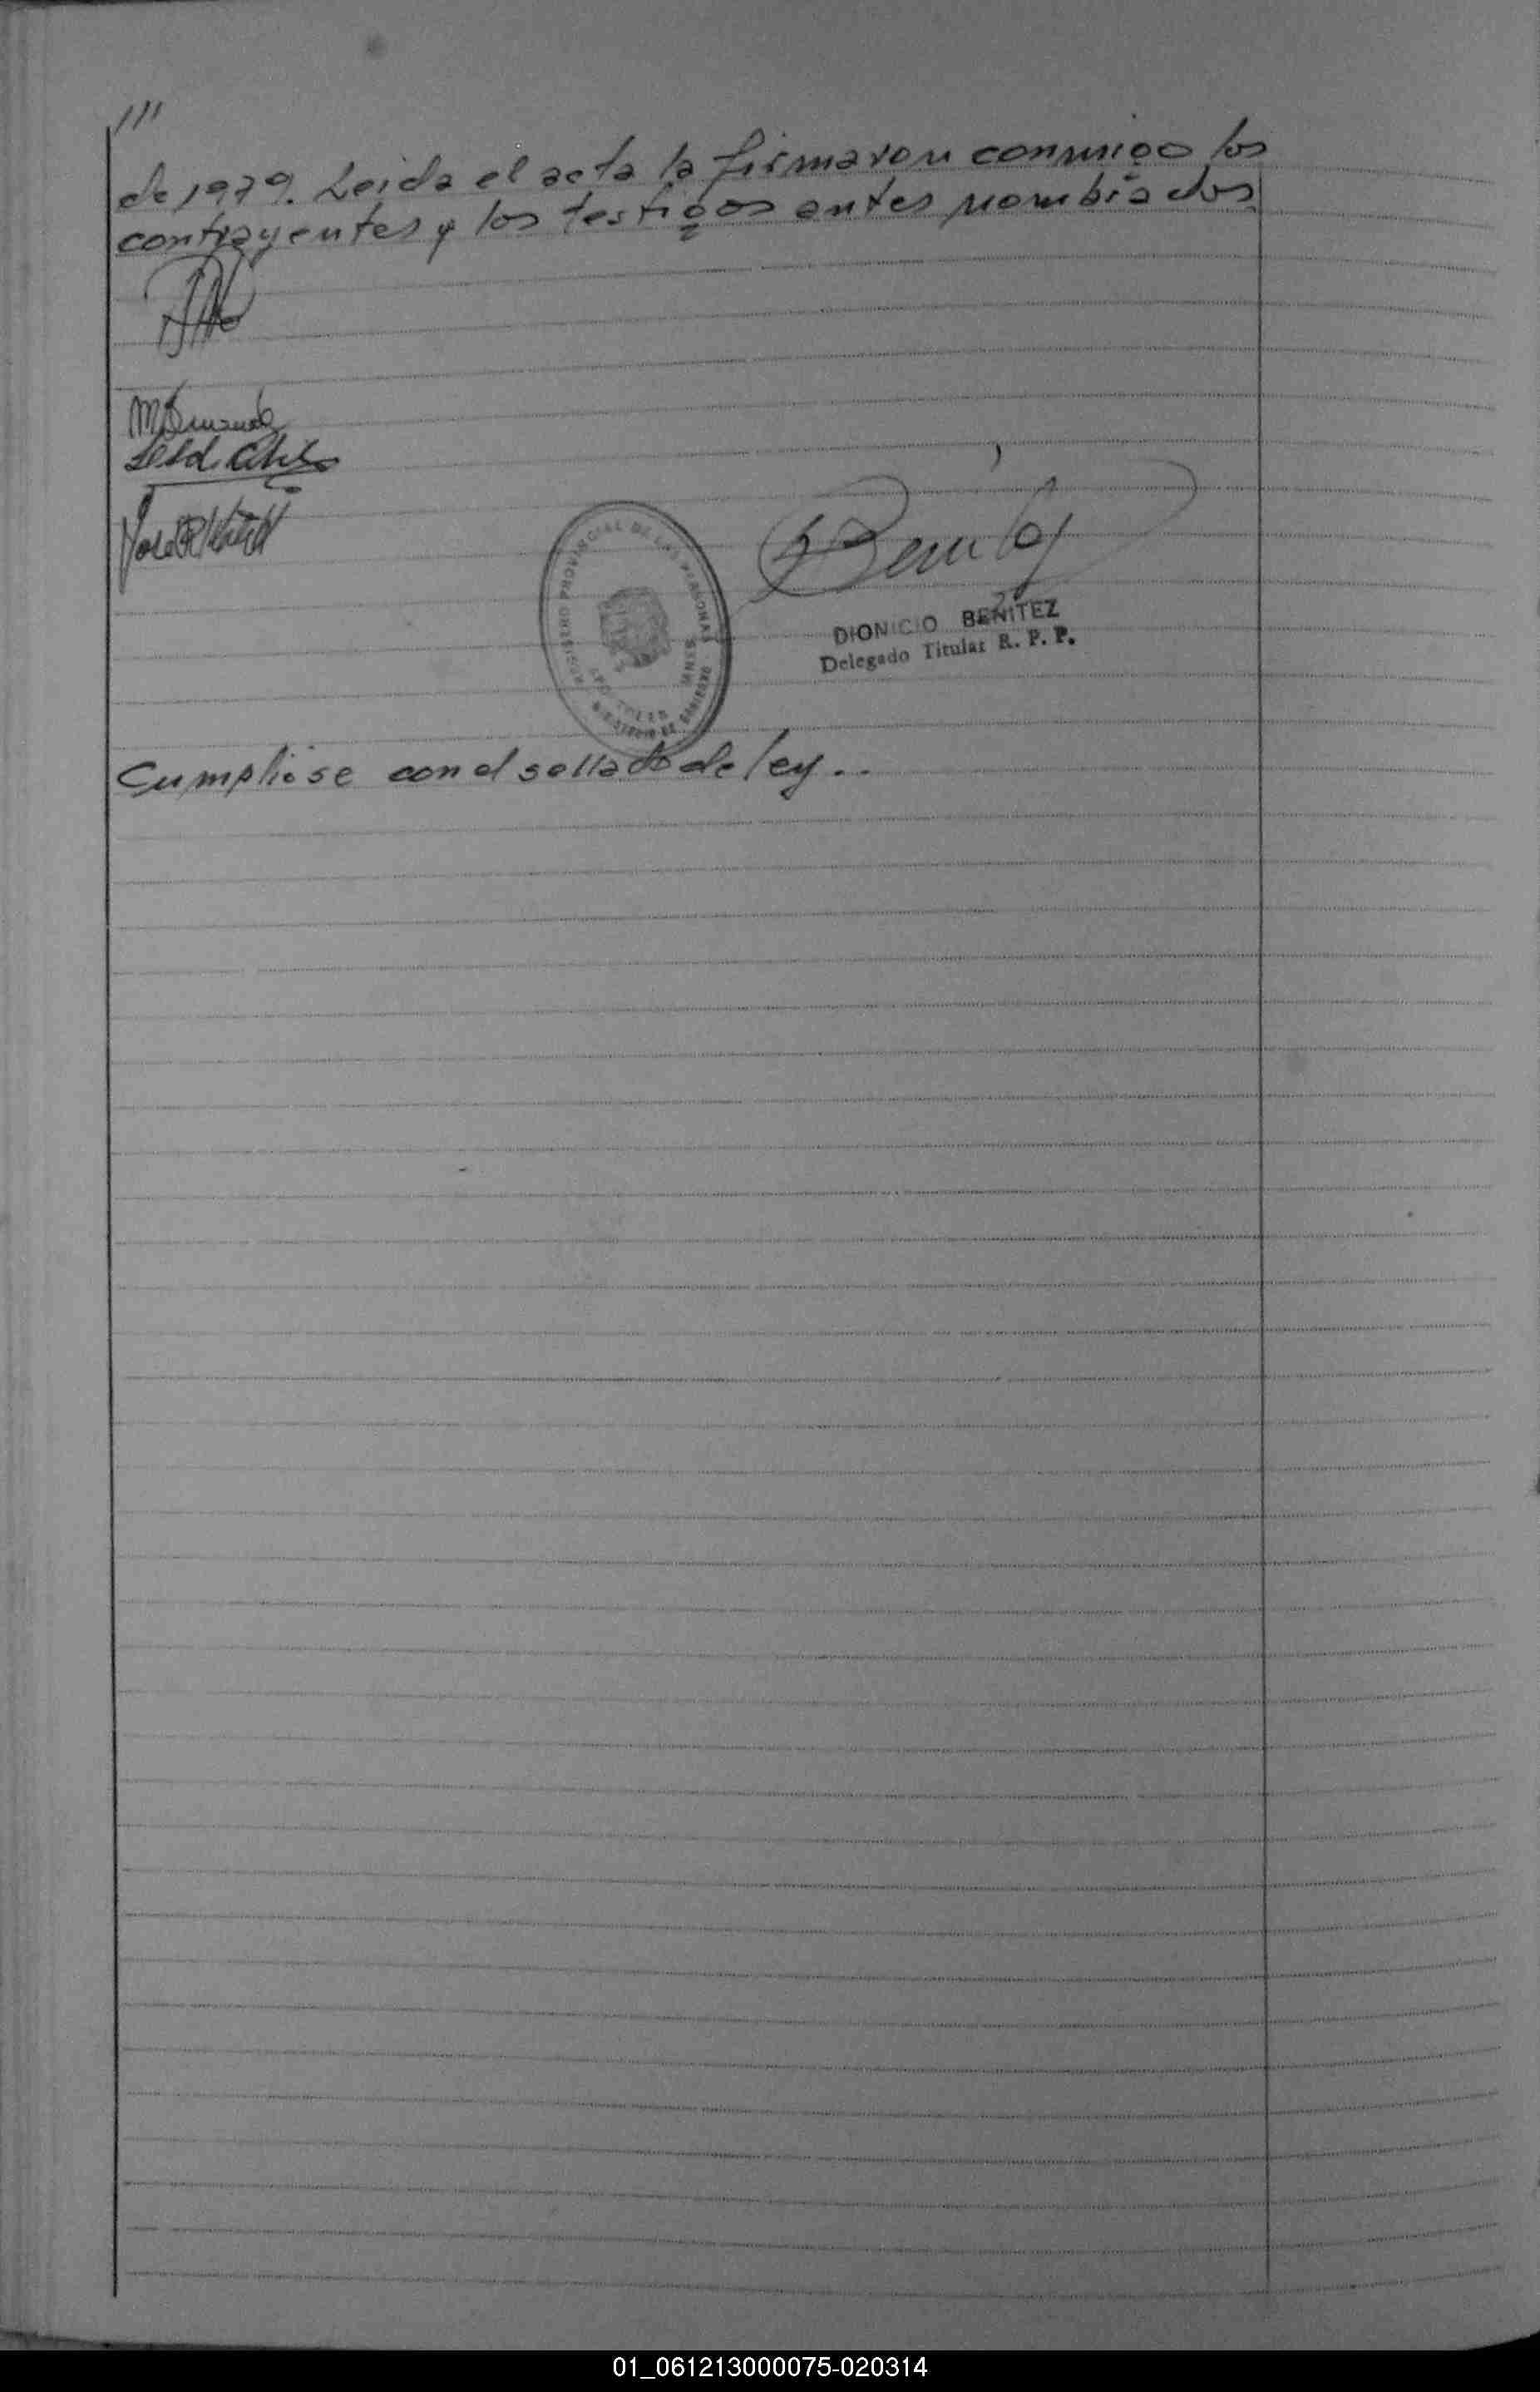 ///
de 1979. Leida el acta la firmaron conmigo los
contrayentes y los testigos antes nombrados.
REGISTRO PROVINCIAL DE LAS PERSONAS
MINISTERIO DE GOBIERNO
DIONICIO BENITEZ
Delegado Titular R. P. P.
Cumplióse con el sellado de ley..
01_061213000075-020314